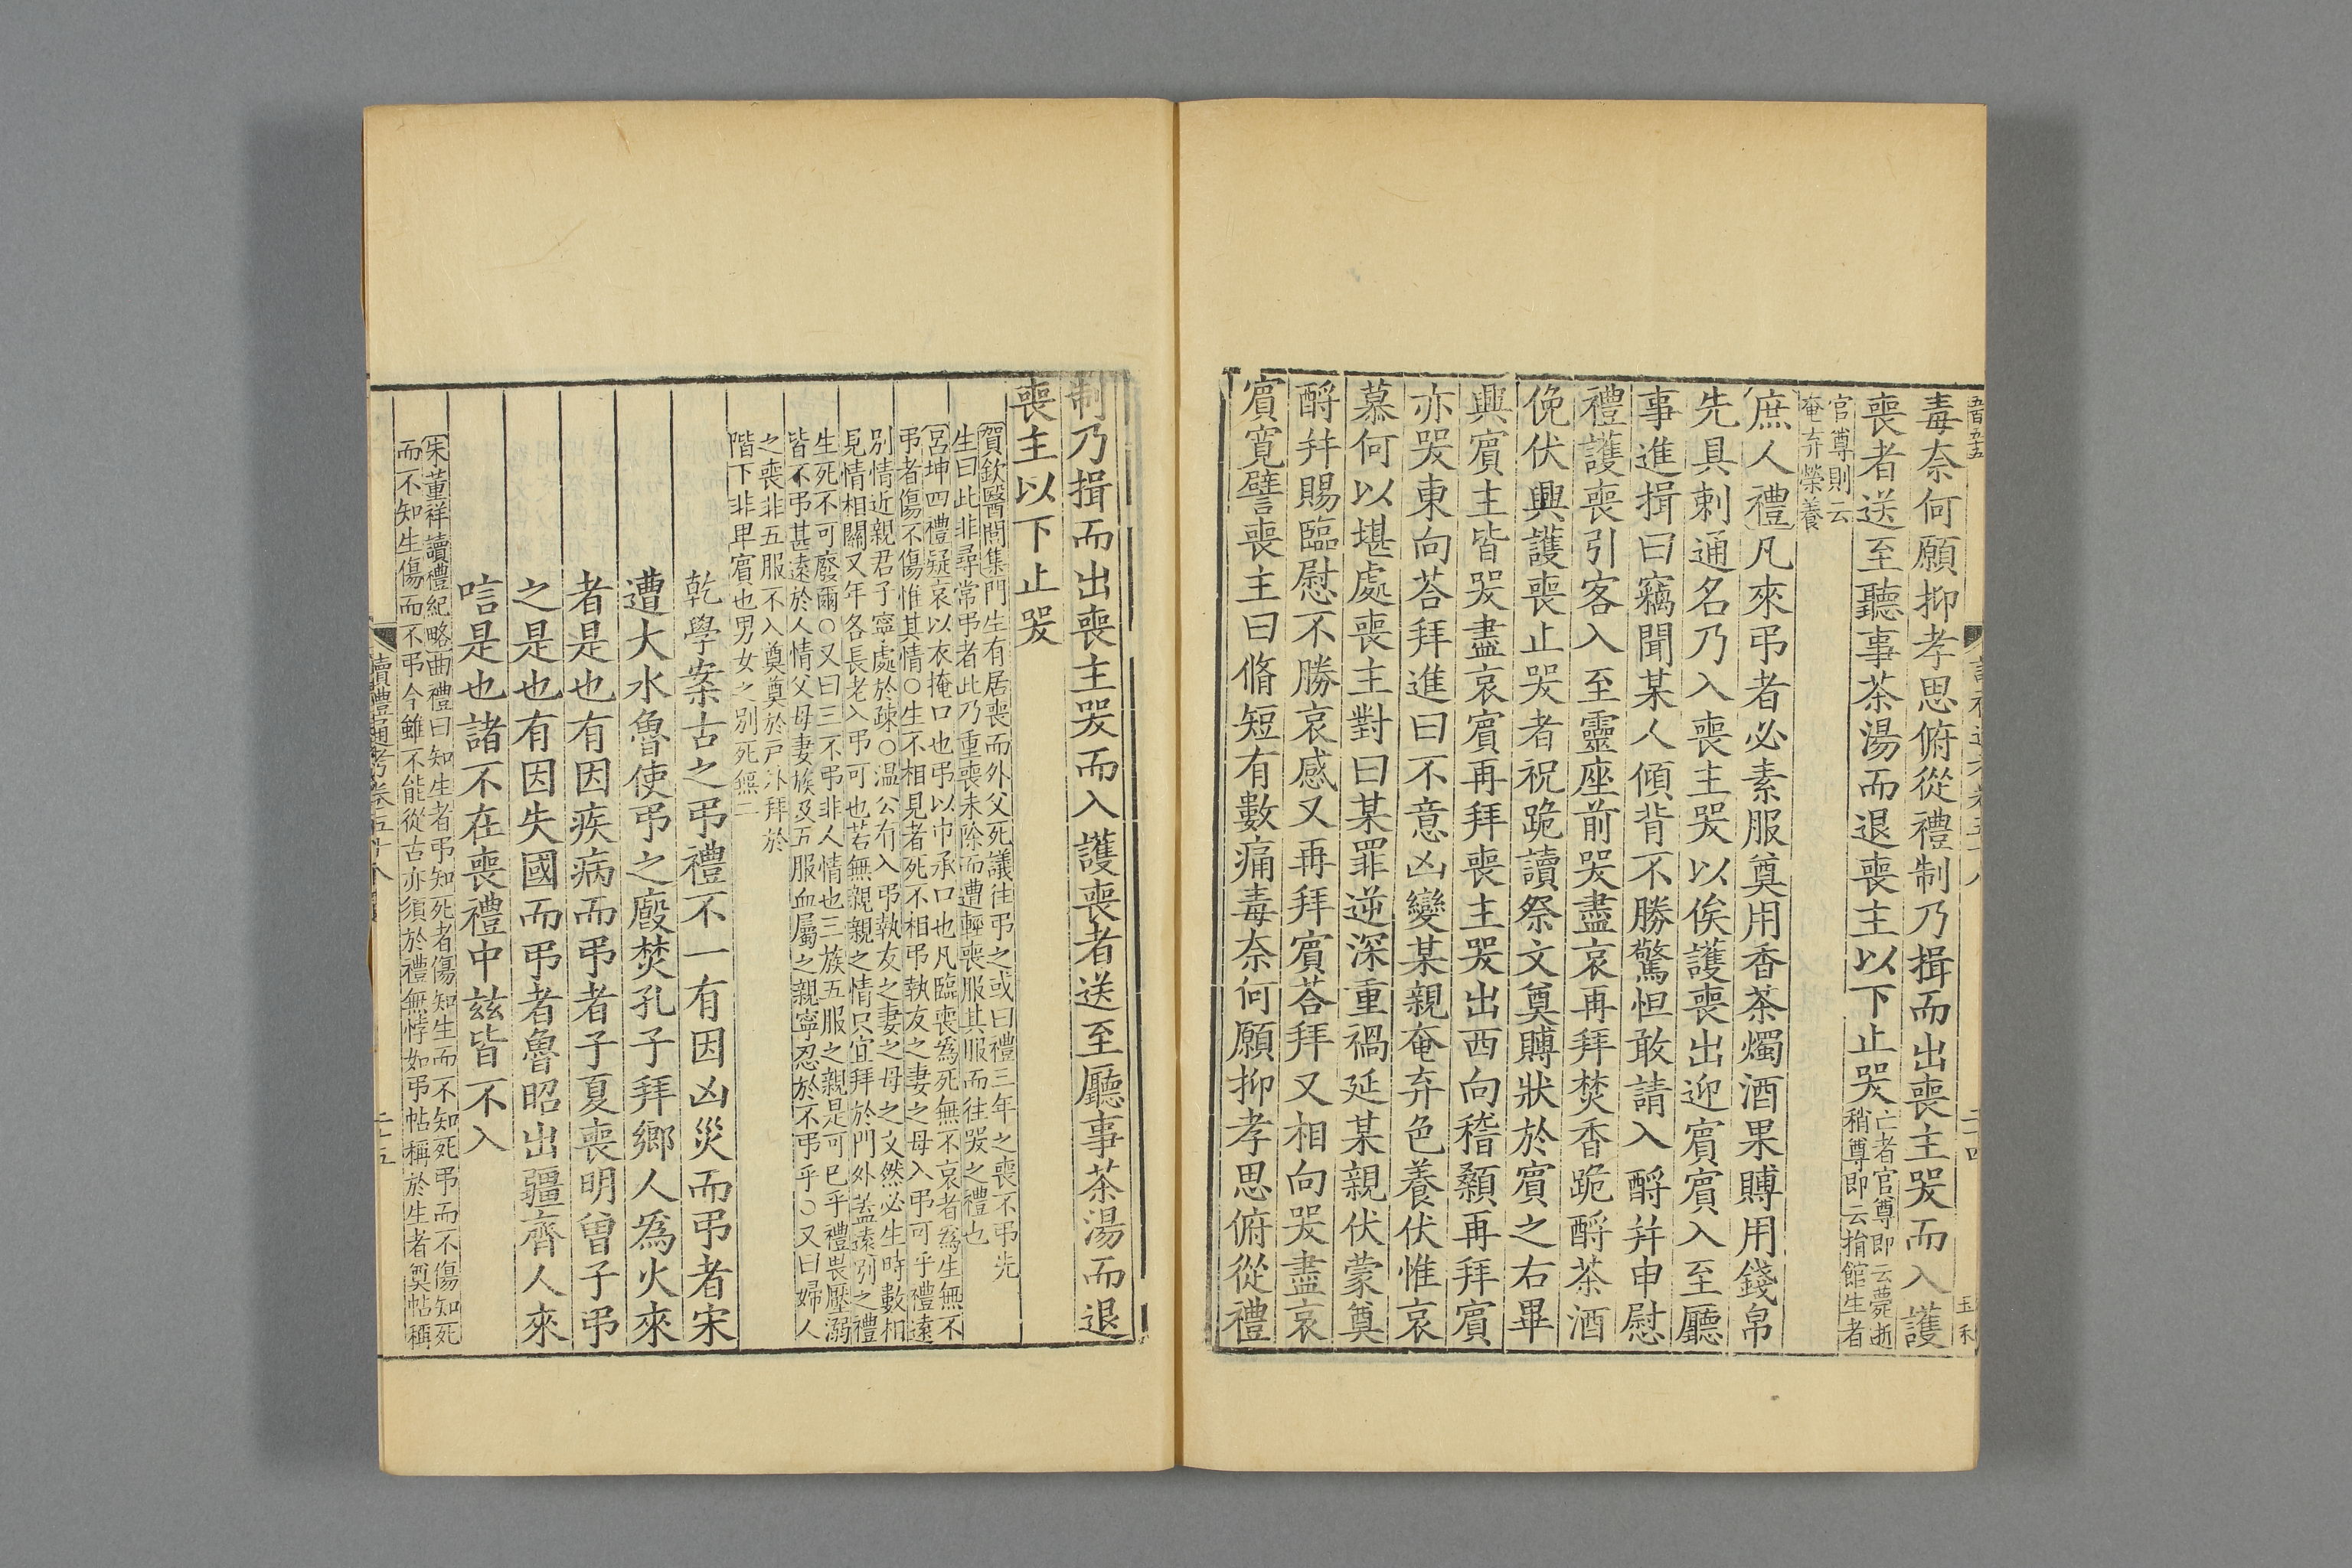 五百五五
毒奈何願抑孝思俯從禮制乃揖而出喪主哭而入護
喪者送至聽事茶湯而退喪主以下止哭亡者官尊卽云薨逝
稍尊卽云捐館生者
官尊則云
奄弃榮養
庶人禮凡來弔者必素服奠用香茶燭酒果賻用錢帛
先具刺通名乃入喪主哭以俟護喪出迎賓賓入至廳
事進揖曰竊聞某人傾背不勝驚怛敢請入酹幷申慰
禮護喪引客入至靈座前哭盡哀再拜焚香跪酹茶酒
俛伏興護喪止哭者祝跪讀祭文奠賻狀於賓之右畢
興賓主皆哭盡哀賓再拜喪主哭出西向稽顙再拜賓
亦哭東向荅拜進曰不意凶變某親奄弃色養伏惟哀
慕何以堪處喪主對曰某罪逆深重禍延某親伏蒙奠
酹幷賜臨慰不勝哀感又再拜賓荅拜又相向哭盡哀
賓寬譬喪主曰脩短有數痛毒奈何願抑孝思俯從禮
制乃揖而出喪主哭而入護喪者送至廳事茶湯而退
喪主以下止哭
賀欽醫閭集門生有居喪而外父死議往弔之或曰禮三年之喪不弔先
生曰此非尋常弔者此乃重喪未除而遭輕喪服其服而往哭之禮也
呂坤四禮疑哀以衣掩口也弔以巾承口也凡臨喪爲死無不哀者爲生無不
弔者傷不傷惟其情○生不相見者死不相弔執友之妻之母入弔可乎禮遠
別情近親君子寧處於疎○溫公有入弔執友之妻之母之文然必生時數相
見情相關又年各長老入弔可也若無親親之情只宜拜於門外盖遠別之禮
生死不可廢爾○又曰三不弔非人情也三族五服之親是可已乎禮畏壓溺
皆不弔甚遠於人情父母妻族及五服血屬之親寧忍於不弔乎○又曰婦人
之喪非五服不入奠奠於戸外拜於
階下非卑賓也男女之別死無二
乾學案古之弔禮不一有因凶災而弔者宋
遭大水魯使弔之廄焚孔子拜鄉人爲火來
者是也有因疾病而弔者子夏喪明曾子弔
之是也有因失國而弔者魯昭出疆齊人來
唁是也諸不在喪禮中玆皆不入
朱董祥讀禮紀略曲禮曰知生者弔知死者傷知生而不知死弔而不傷知死
而不知生傷而不弔今雖不能從古亦須於禮無悖如弔帖稱於生者奠帖稱
讀禮通考卷五十八
二十五